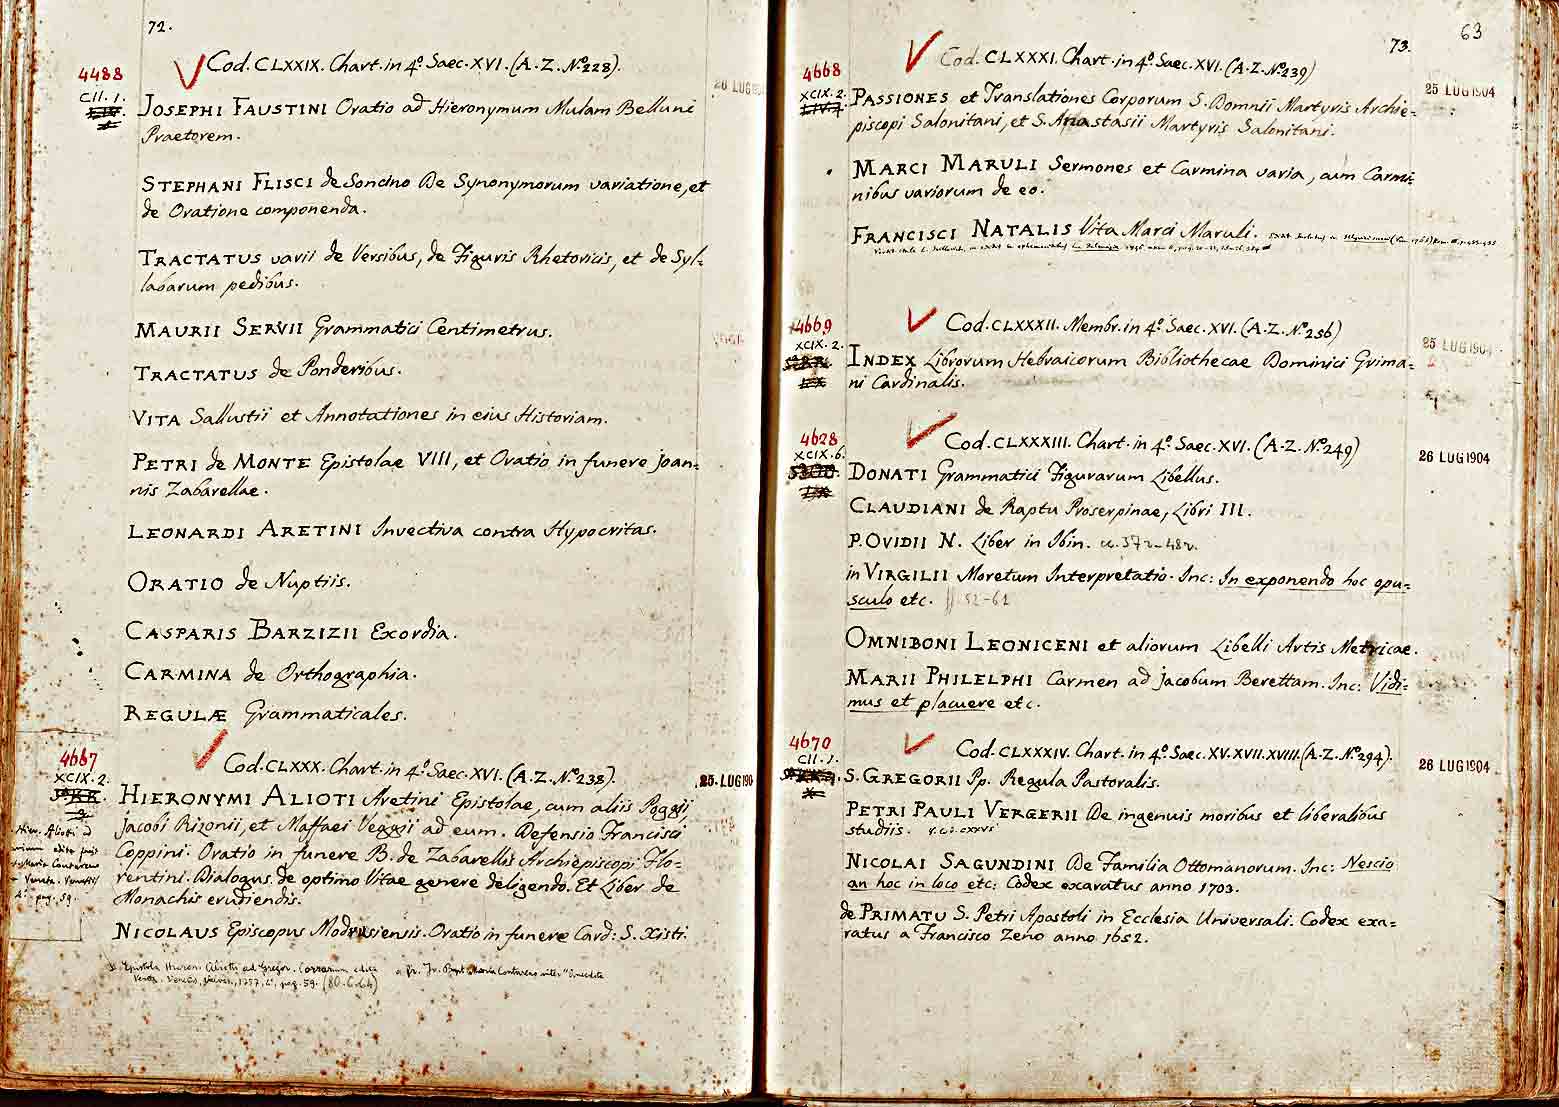 72.
4488
Cod. CLXXIX. Chart. in 4º. Saec. XVI. (A-Z. Nº. 228).
CII. 1.
JOSEPHI FAUSTINI Oratio ad Hieronymum Mulam Belluni
Praetorem.
STEPHANI FLISCI de Soncino De Synonymorum variatione, et
de Oratione componenda.
TRACTATUS varii de Versibus, de Figuris Rhetoricis, et de Syl-
labarum pedibus.
MAURII SERVII Grammatici Centimetrus.
TRACTATUS de Ponderibus.
VITA Sallustii et Annotationes in eius Historiam.
PETRI de MONTE Epistolae VIII, et Oratio in funere Joan-
nis Zabarellae.
LEONARDI ARETINI Invectiva contra Hypocritas.
ORATIO de Nuptiis.
CASPARIS BARZIZII Exordia.
CARMINA de Orthographia.
REGULÆ Grammaticales.
4667
Cod. CLXXX. Chart. in 4º. Saec. XVI. (A-Z. Nº. 238).
25 LUG 190
XCIX. 2.
HIERONYMI ALIOTI Aretini Epistolae, cum aliis Poggii,
Jacobi Rizonii, et Maffaei Veggii ad eum. Defensio Francisci
Coppini. Oratio in funere B. de Zabarellis Archiepiscopi Flo-
rentini. Dialogus de optimo Vitae genere deligendo. Et Liber de
Monachis erudiendis.
NICOLAUS Episcopus Modrusiensis. Oratio in funere Card: S. Xisti.
Epistola Hieron. Aliotti ad Gregor. Corrarium edita a
Venet. 1757, 4º, pag. 59. (80.6.64)
63
73.
4668
Cod. CLXXXI. Chart. in 4º. Saec. XVI. (A-Z. Nº. 239)
25 LUG 1904
XCIX. 2.
PASSIONES et Translationes Corporum S. Domnii Martyris Archie-
piscopi Salonitani, et S. Anastasii Martyris Salonitani.
MARCI MARULI Sermones et Carmina varia, cum Carmi-
nibus variorum de eo.
FRANCISCI NATALIS Vita Marci Maruli.
4669
Cod. CLXXXII. Membr. in 4º. Saec. XVI. (A-Z. Nº. 256)
25 LUG 1904
XCIX. 2.
INDEX Librorum Hebraicorum Bibliothecae Dominici Grima-
ni Cardinalis.
4628
Cod. CLXXXIII. Chart. in 4º. Saec. XVI. (A-Z. Nº. 249)
26 LUG 1904
XCIX. 6.
DONATI Grammatici Figurarum Libellus.
CLAUDIANI de Raptu Proserpinae, Libri III.
P. OVIDII N. Liber in Ibin. cc. 37v-48v.
in VIRGILII Moretum Interpretatio. Inc: In exponendo hoc opu-
sculo etc. ff. 52-61
OMNIBONI LEONICENI et aliorum Libelli Artis Metricae.
MARII PHILELPHI Carmen ad Jacobum Berettam. Inc: Vidi-
mus et placuere etc.
4670
Cod. CLXXXIV. Chart. in 4º. Saec. XV. XVII. XVIII. (A-Z. Nº. 294).
26 LUG 1904
CII. 1.
S. GREGORII Pp. Regula Pastoralis.
PETRI PAULI VERGERII De ingenuis moribus et liberalibus
studiis.
NICOLAI SAGUNDINI De Familia Ottomanorum. Inc: Nescio
an hoc in loco etc: Codex exaratus anno 1703.
de PRIMATU S. Petri Apostoli in Ecclesia Universali. Codex exa-
ratus a Francisco Zeno anno 1652.